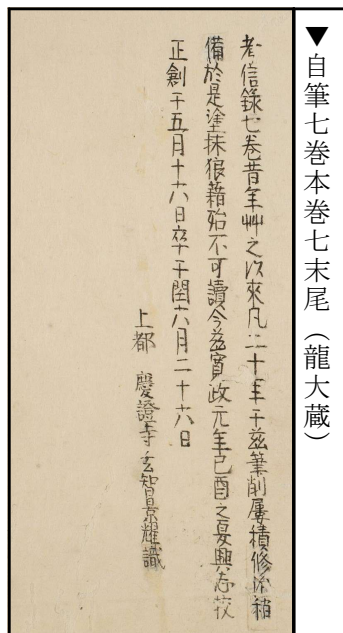 ▼自筆七巻本巻七末尾（龍大蔵）
考信錄七卷昔年艸之以來凡二十年于茲筆削屢積修添補
備於是塗抹狼藉殆不可讀今茲寛政元年己酉之夏興志校
正創于五月十六日卒于閏六月二十六日
上都　慶證寺玄智景耀識